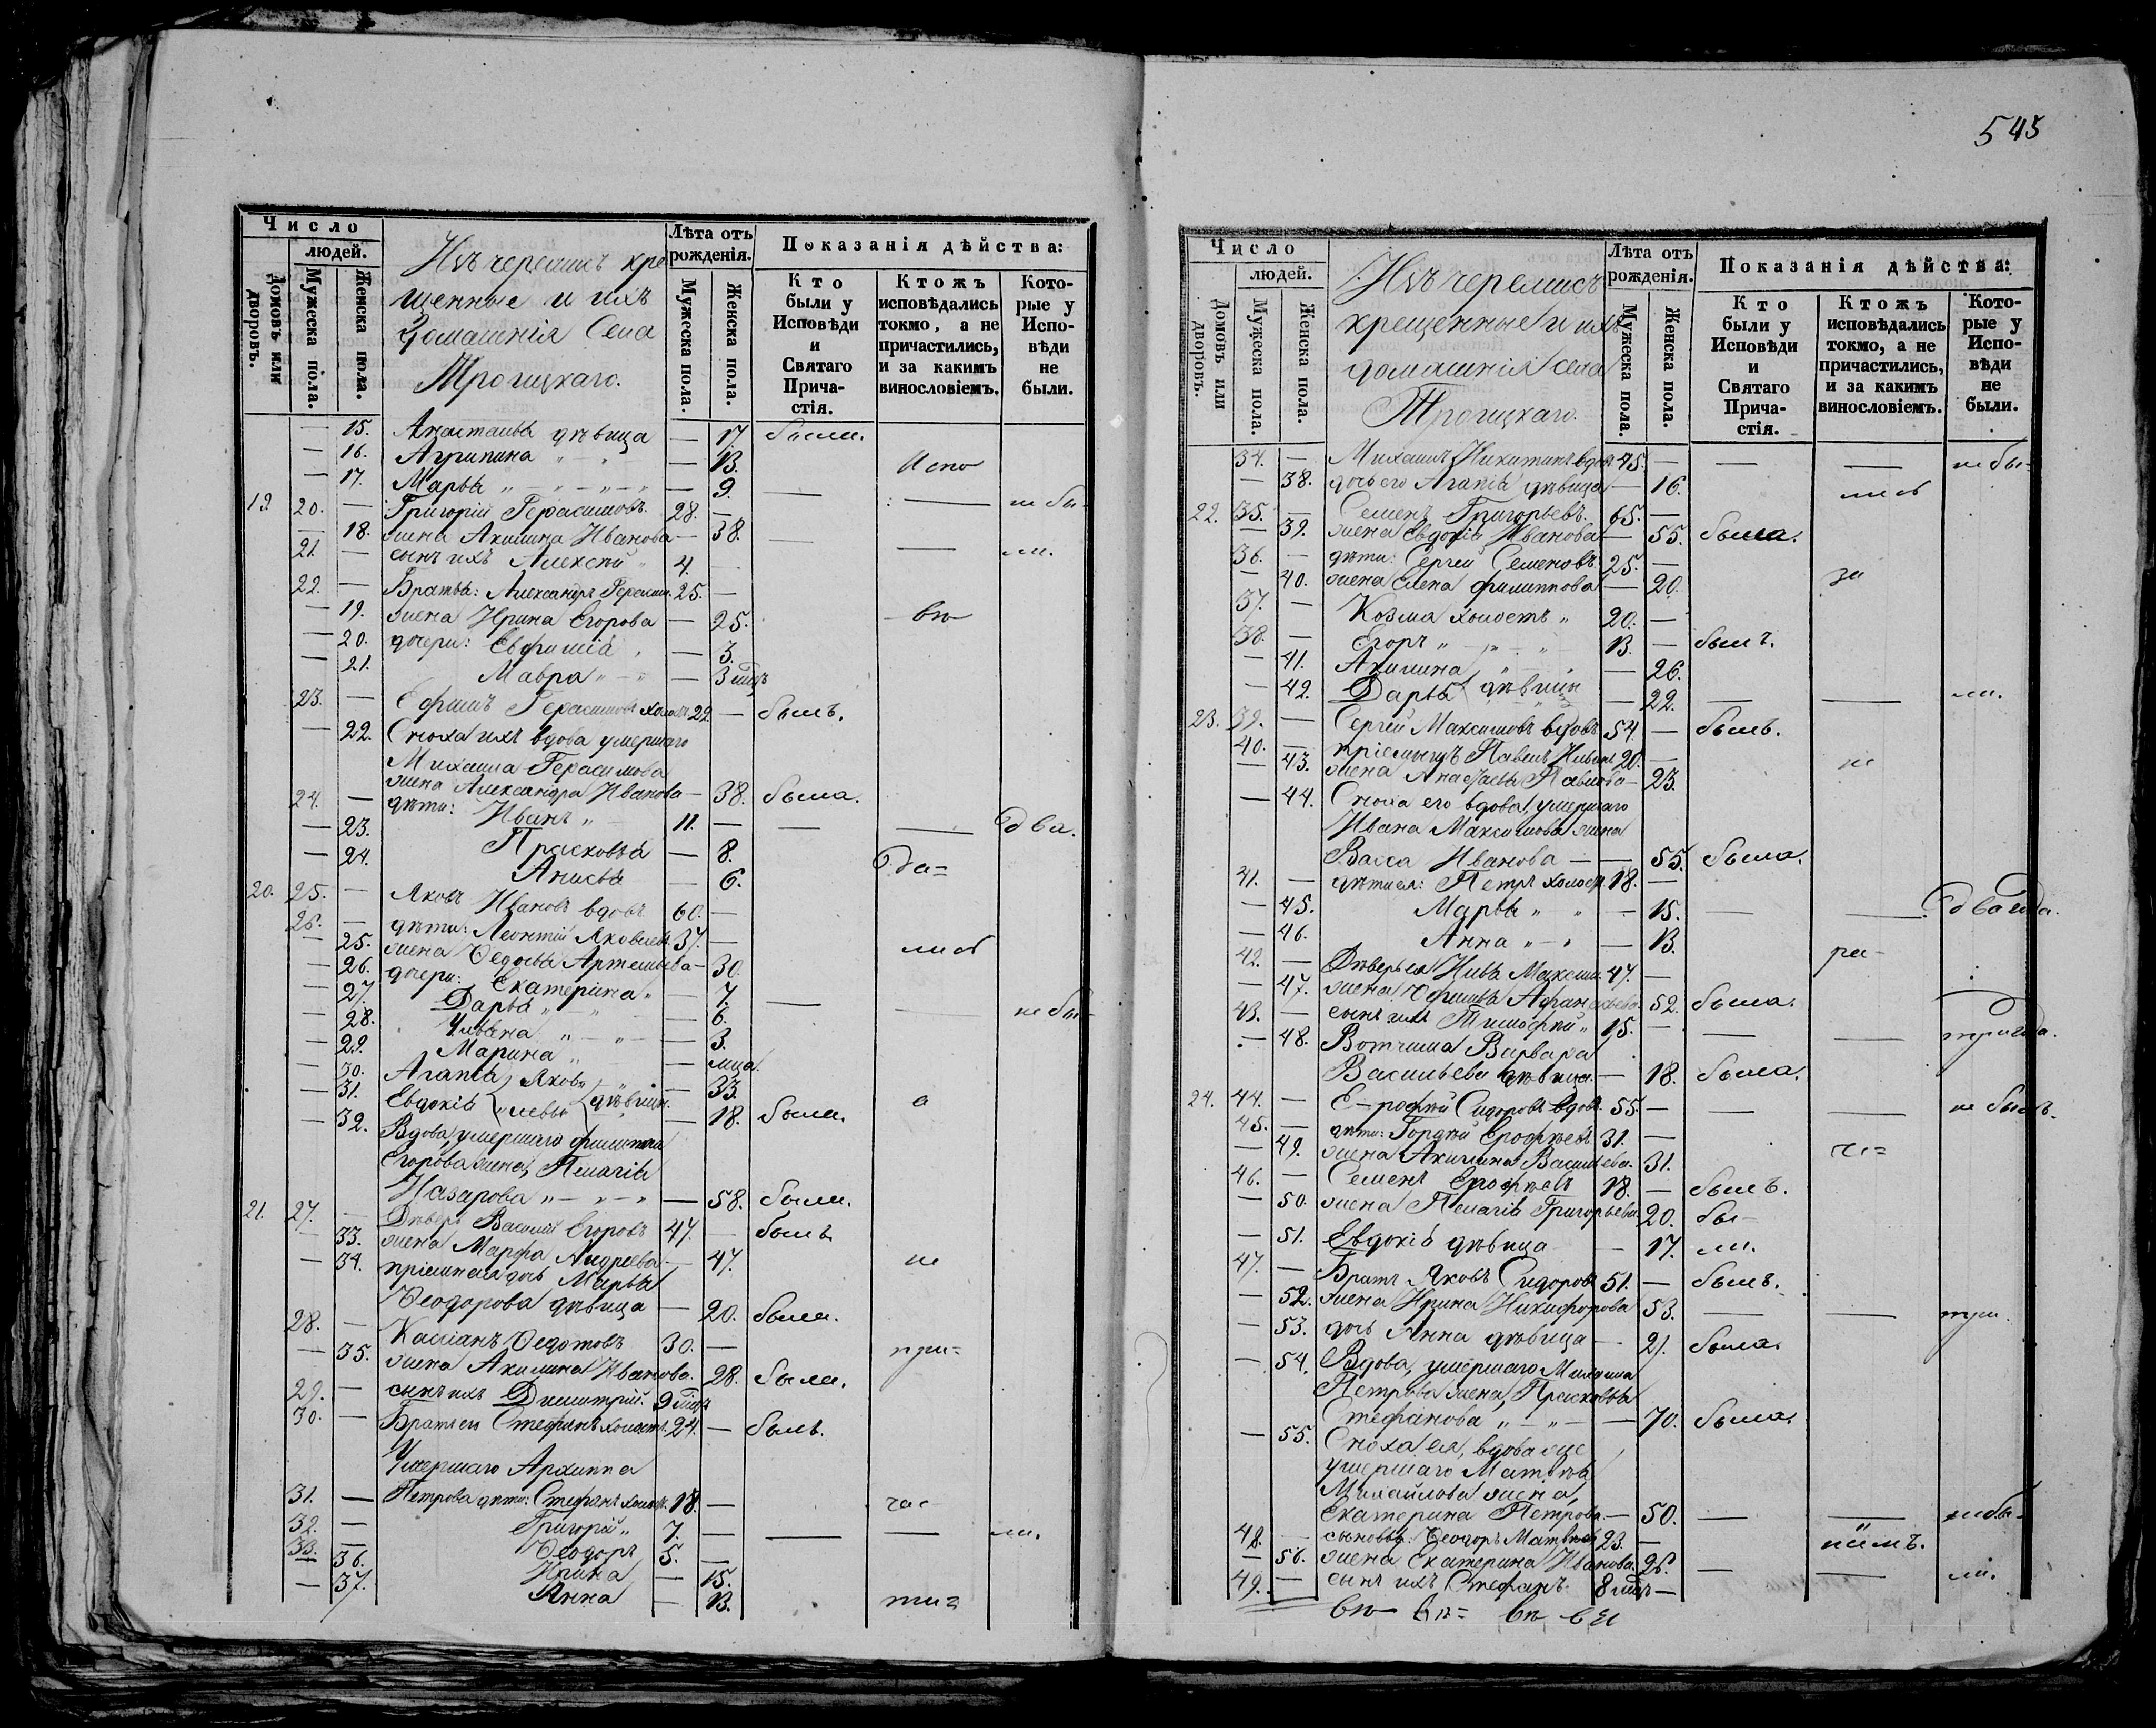 Число
людей.
Домовъ или дворовъ.
Мужеска пола.
Женска пола.
Изъ черемисъ кре
щенные и ихъ
домашнія Села
Троицкаго.
Лѣта отъ рожденія.
Мужеска пола.
Женска пола.
Показанія дѣйства:
Кто были у Исповѣди и Святаго Прича-стія.
Ктожъ исповѣдались токмо, а не причастились, и за какимъ винословіемъ.
Кото-рые у Испо-вѣди не были.
— 15. Анастасья дѣвица — 17. были.
— 16. Агрипина „ „ — 13. Испо
— 17. Марья „ — „ — „ — „ — 9.
19. 20. — Григорій Герасимовъ. 28. — — — не бы-
— 18. жена Акилина Иванова — 38. — — ли.
21. — сынъ ихъ Алексѣй „ 4. —
22. — Братья: Александръ Герасим. 25. —
— 19. жена Ирина Егорова — 25. вѣ
— 20. дочери: Евфимія — 3.
— 21. Мавра „ — „ — 3 мцъ
23. — Ефимъ Герасимовъ холос. 22. — былъ.
— 22. Сноха ихъ вдова умершаго
Михаила Герасимова
жена Александра Иванова — 38. была.
24. — дѣти: Иванъ „ 11. — — — два.
— 23. Прасковья — 8. да=
— 24. Анисья — 6.
20. 25. — Яковъ Ивановъ вдовъ 60. —
26. — дѣти: Леонтій Яковлевъ. 37. —
— 25. жена Ѳедосья Артемьева — 30. лись
— 26. дочери: Екатерина „ — 7.
— 27. Дарья „ — „ — 6. — — не бы-
— 28. Ульяна „ — „ — 3.
— 29. Марина „ — мца.
— 30. Агапія Яков- „ — 33.
— 31. Евдокія левы дѣвицы. — 18. были. а
— 32. Вдова, умершаго Филиппа
Егорова жена, Пелагія
Назарова „ — „ — „ — 58. были.
21. 27. — Деверь Василій Егоровъ 47. — былъ
— 33. жена Марфа Андреева — 47. не
— 34. пріемная дочь Марья
Ѳеодорова дѣвица — 20. были.
28. — Касіанъ Ѳедотовъ 30. — при=
— 35. жена Акилина Иванова. 28. были.
29. — сынъ ихъ Димитрій. 9 мцъ
30. — Братъ его Стефанъ холост. 24. — былъ.
Умершаго Архиппа
31. — Петрова дѣти: Стефанъ холост. 18. — час
32. — Григорій „ 7. — — — ли.
33. — Ѳеодоръ 5. —
— 36. Ирина — 15.
— 37. Анна — 13. ти=
545
Число
людей.
Домовъ или дворовъ.
Мужеска пола.
Женска пола.
Изъ черемисъ
крещенные и ихъ
домашнія села
Троицкаго.
Лѣта отъ рожденія.
Мужеска пола.
Женска пола.
Показанія дѣйства:
Кто были у Исповѣди и Святаго Прича-стія.
Ктожъ исповѣдались токмо, а не причастились, и за какимъ винословіемъ.
Кото-рые у Испо-вѣди не были.
34. — Михаилъ Никитинъ вдов. 45. — — — не бы-
— 38. дочь его Агапія дѣвица — 16. лись
22. 35. — Семенъ Григорьевъ. 65. —
— 39. жена Евдокія Иванова — 55. была.
36. — дѣти: Сергей Семеновъ 25. —
— 40. жена Елена Филиппова — 20. за
37. — Козма холостъ „ 20. —
38. — Егоръ „ — „ — „ 13. — былъ.
— 41. Акилина „ — 26.
— 42. Дарья дѣвицы — 22. — — ли.
23. 39. — Сергій Максимовъ вдовъ 54. — былъ.
40. — пріемышъ Павелъ Ивановъ 20. — не
— 43. жена Анастасья Павлова — 23.
— 44. Сноха его вдова, умершаго
Ивана Максимова жена
Васса Иванова — — 55. была.
41. — дѣти ея: Петръ холост. 18. —
— 45. Марья „ „ — 15. — — два года.
— 46. Анна „ — „ — 13.
42. — Деверь ея Илья Максим. 47. — ра-
— 47. жена Ѳфимья Афанасьева. 52. была.
43. — сынъ ихъ Тимоѳей „ 15. — — — три года.
— 48. Вотчима Варвара
Васильева дѣвица. — 18. была.
24. 44. — Ерофѣй Сидоровъ вдов. 55. — — — не былъ.
45. — дѣти: Гордѣй Ерофѣевъ 31. —
— 49. жена Акилина Васильева. 31. че=
46. — Семенъ Ерофѣевъ 18. — былъ.
— 50. жена Пелагія Григорьева. 20. бы-
— 51. Евдокія дѣвица — 17. ли.
47. — Братъ Яковъ Сидоровъ 51. — былъ.
— 52. жена Ирина Никифорова 53. — — три.
— 53. дочь Анна дѣвица — 21. была.
— 54. Вдова, умершаго Михаила
Петрова жена, Прасковья
Стефанова „ — „ — — 70. была.
— 55. Сноха ея, вдова же
умершаго Матвѣя
Михайлова жена,
Екатерина Петрова. — 50. — — не бы-
48. — сыновья: Ѳеодоръ Матвѣев. 23. — ніемъ.
— 56. жена Екатерина Иванова. 26.
49. — сынъ ихъ Стефанъ. 8 мцъ — — — ли.